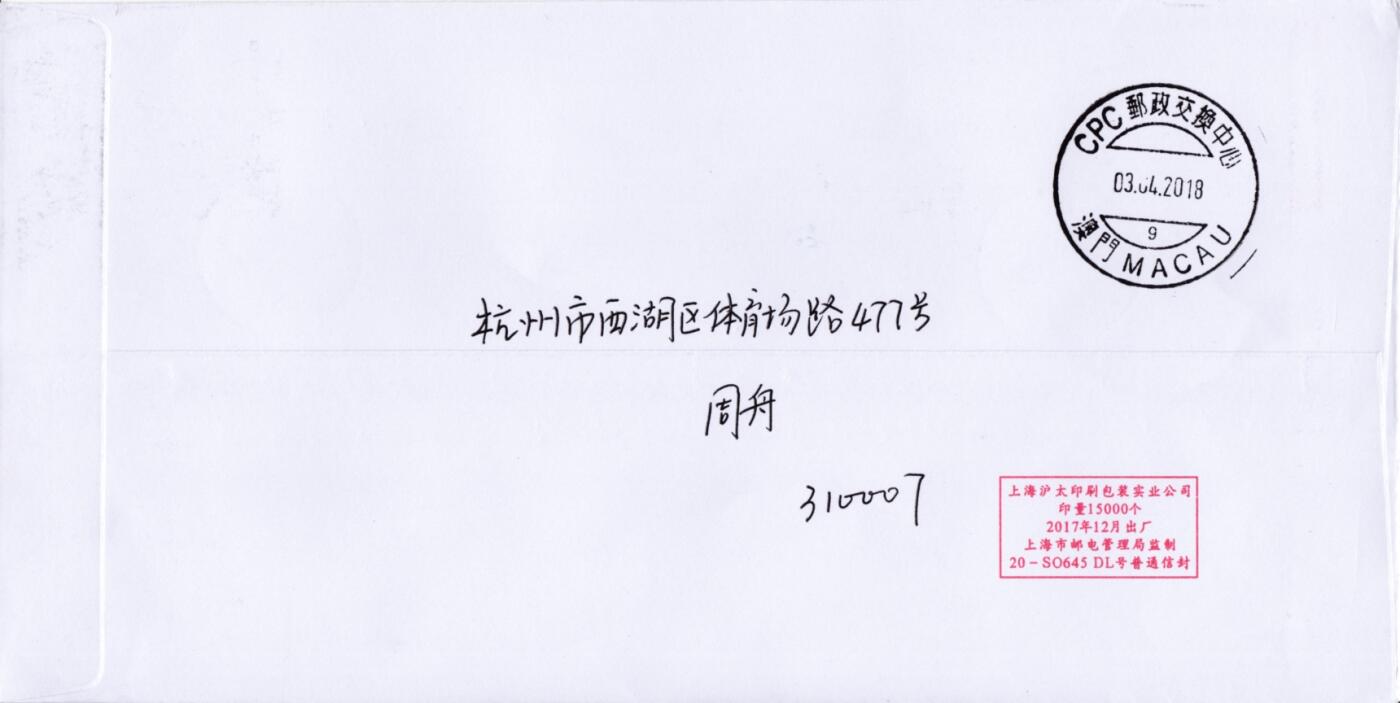 CPC 郵政交換中心
03.04.2018
9
澳門 MACAU
杭州市西湖区体育场路477号
周舟
310007
上海沪太印刷包装实业公司
印量15000个
2017年12月出厂
上海市邮电管理局监制
20-SO645 DL号普通信封